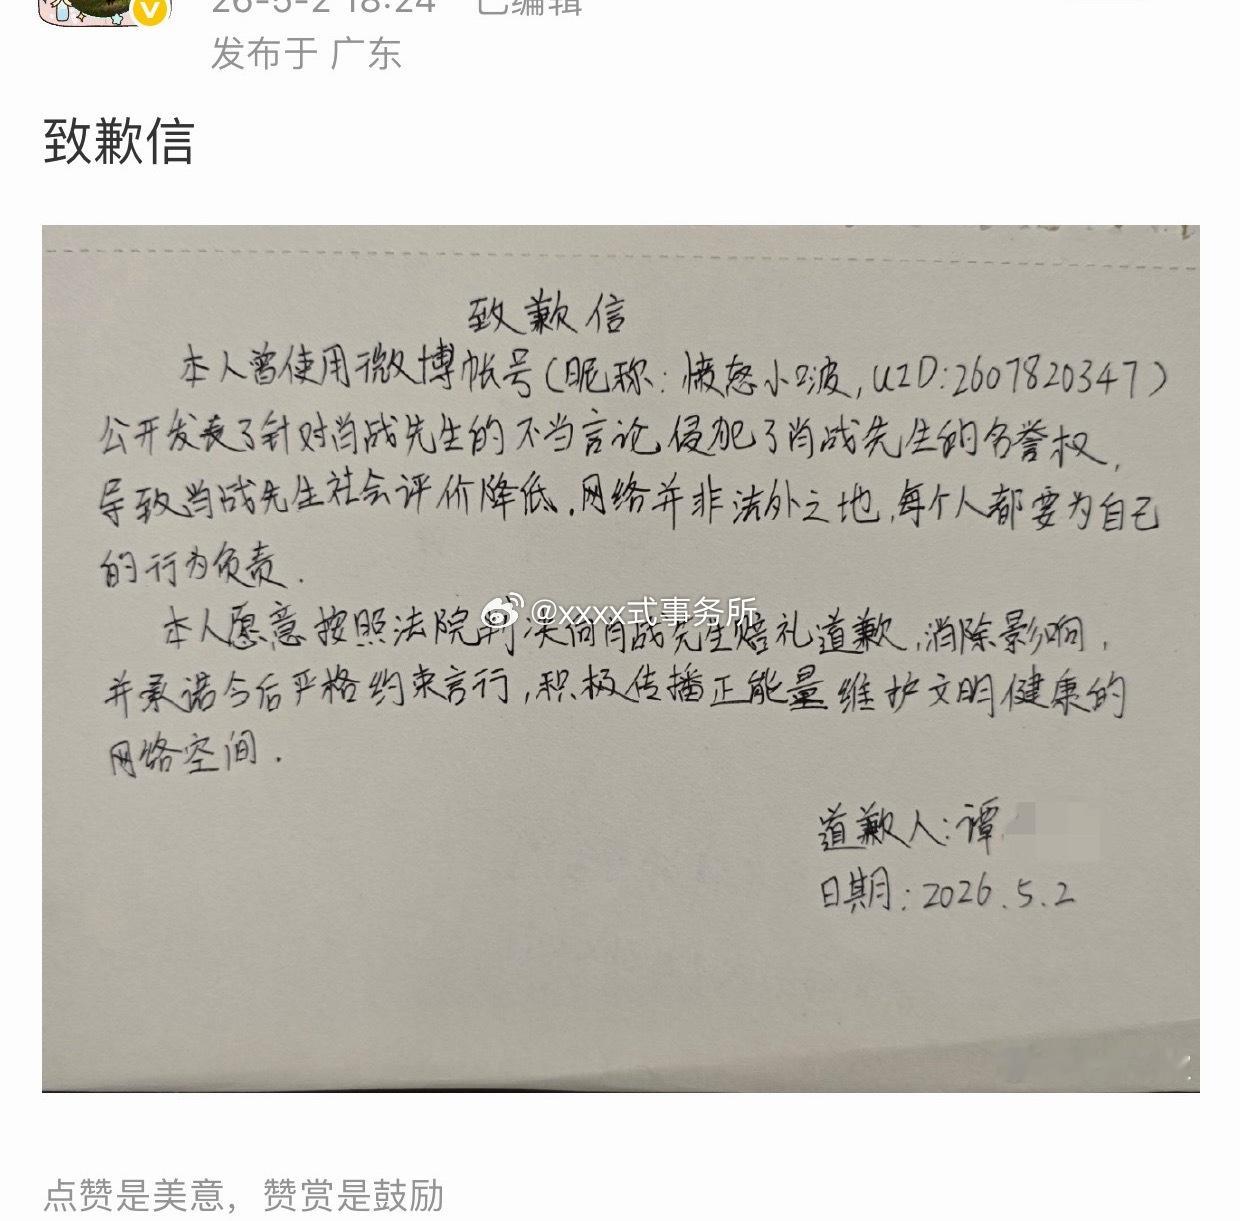 26-5-2 18:24 已编辑
发布于 广东
致歉信
致歉信
本人曾使用微博帐号(昵称:愤怒小口波,UID:2607820347)
公开发表了针对肖战先生的不当言论,侵犯了肖战先生的名誉权,
导致肖战先生社会评价降低.网络并非法外之地,每个人都要为自己
的行为负责.
@xxxx式事务所
本人愿意按照法院判决向肖战先生赔礼道歉,消除影响,
并承诺今后严格约束言行,积极传播正能量维护文明健康的
网络空间.
道歉人:谭
日期:2026.5.2
点赞是美意,赞赏是鼓励